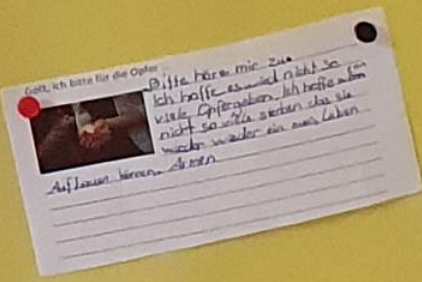 Gott, ich bitte für die Opfer
Bitte höre mir zu.
Ich hoffe es wird nicht so
viele Opfer geben. Ich hoffe
nicht so viele sterben das sie
wieder ein Leben
Aufbauen können. Amen